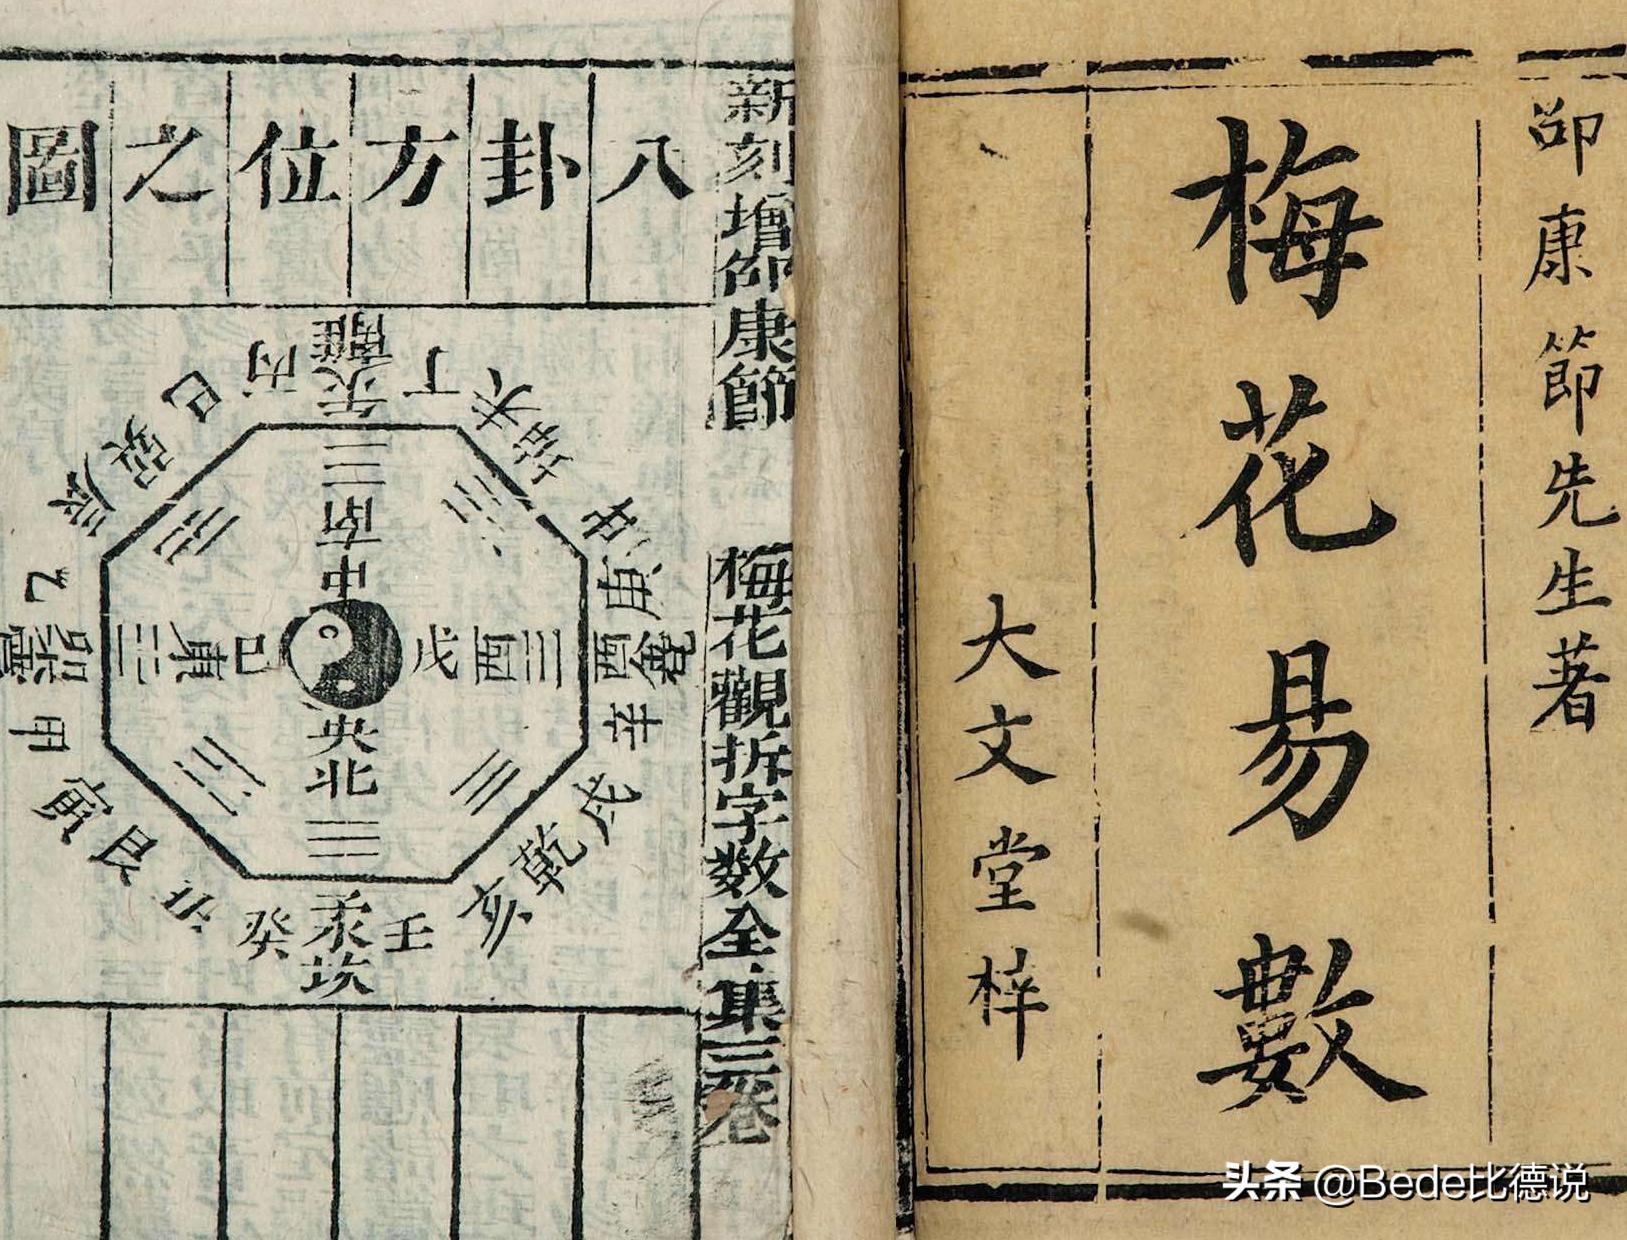 邵康節先生著
梅花易數
大文堂梓
新刻增邵康節 梅花觀拆字數全集三卷
八卦方位之圖
離
午
丙
丁
巳
未
坤
巽
辰
申
乙
庚
震
卯
酉
兌
甲
辛
寅
艮
戌
乾
丑
亥
癸
子
壬
坎
南
中
東
己
戊
西
央
北
头条 @Bede比德说